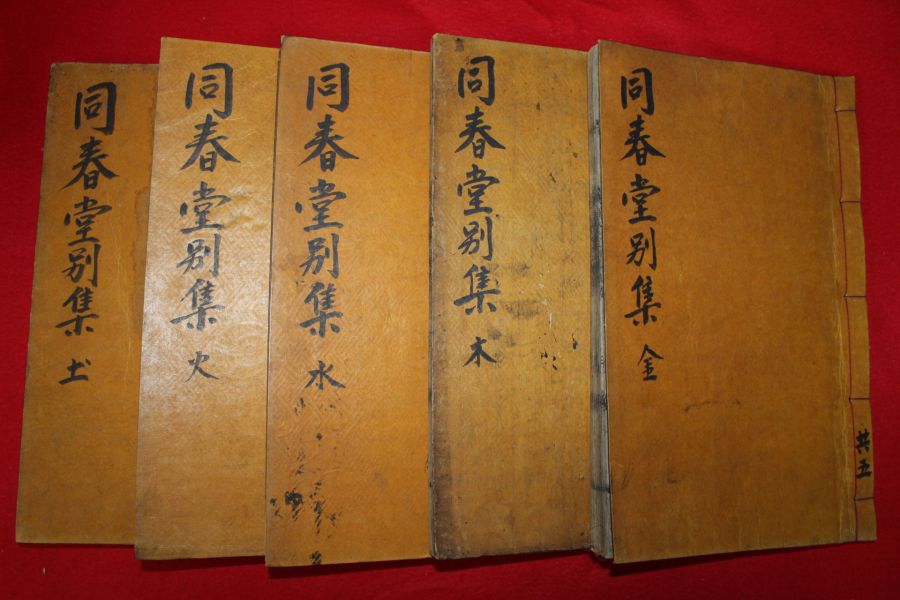 同春堂別集 金
共五
同春堂別集 木
同春堂別集 水
同春堂別集 火
同春堂別集 土